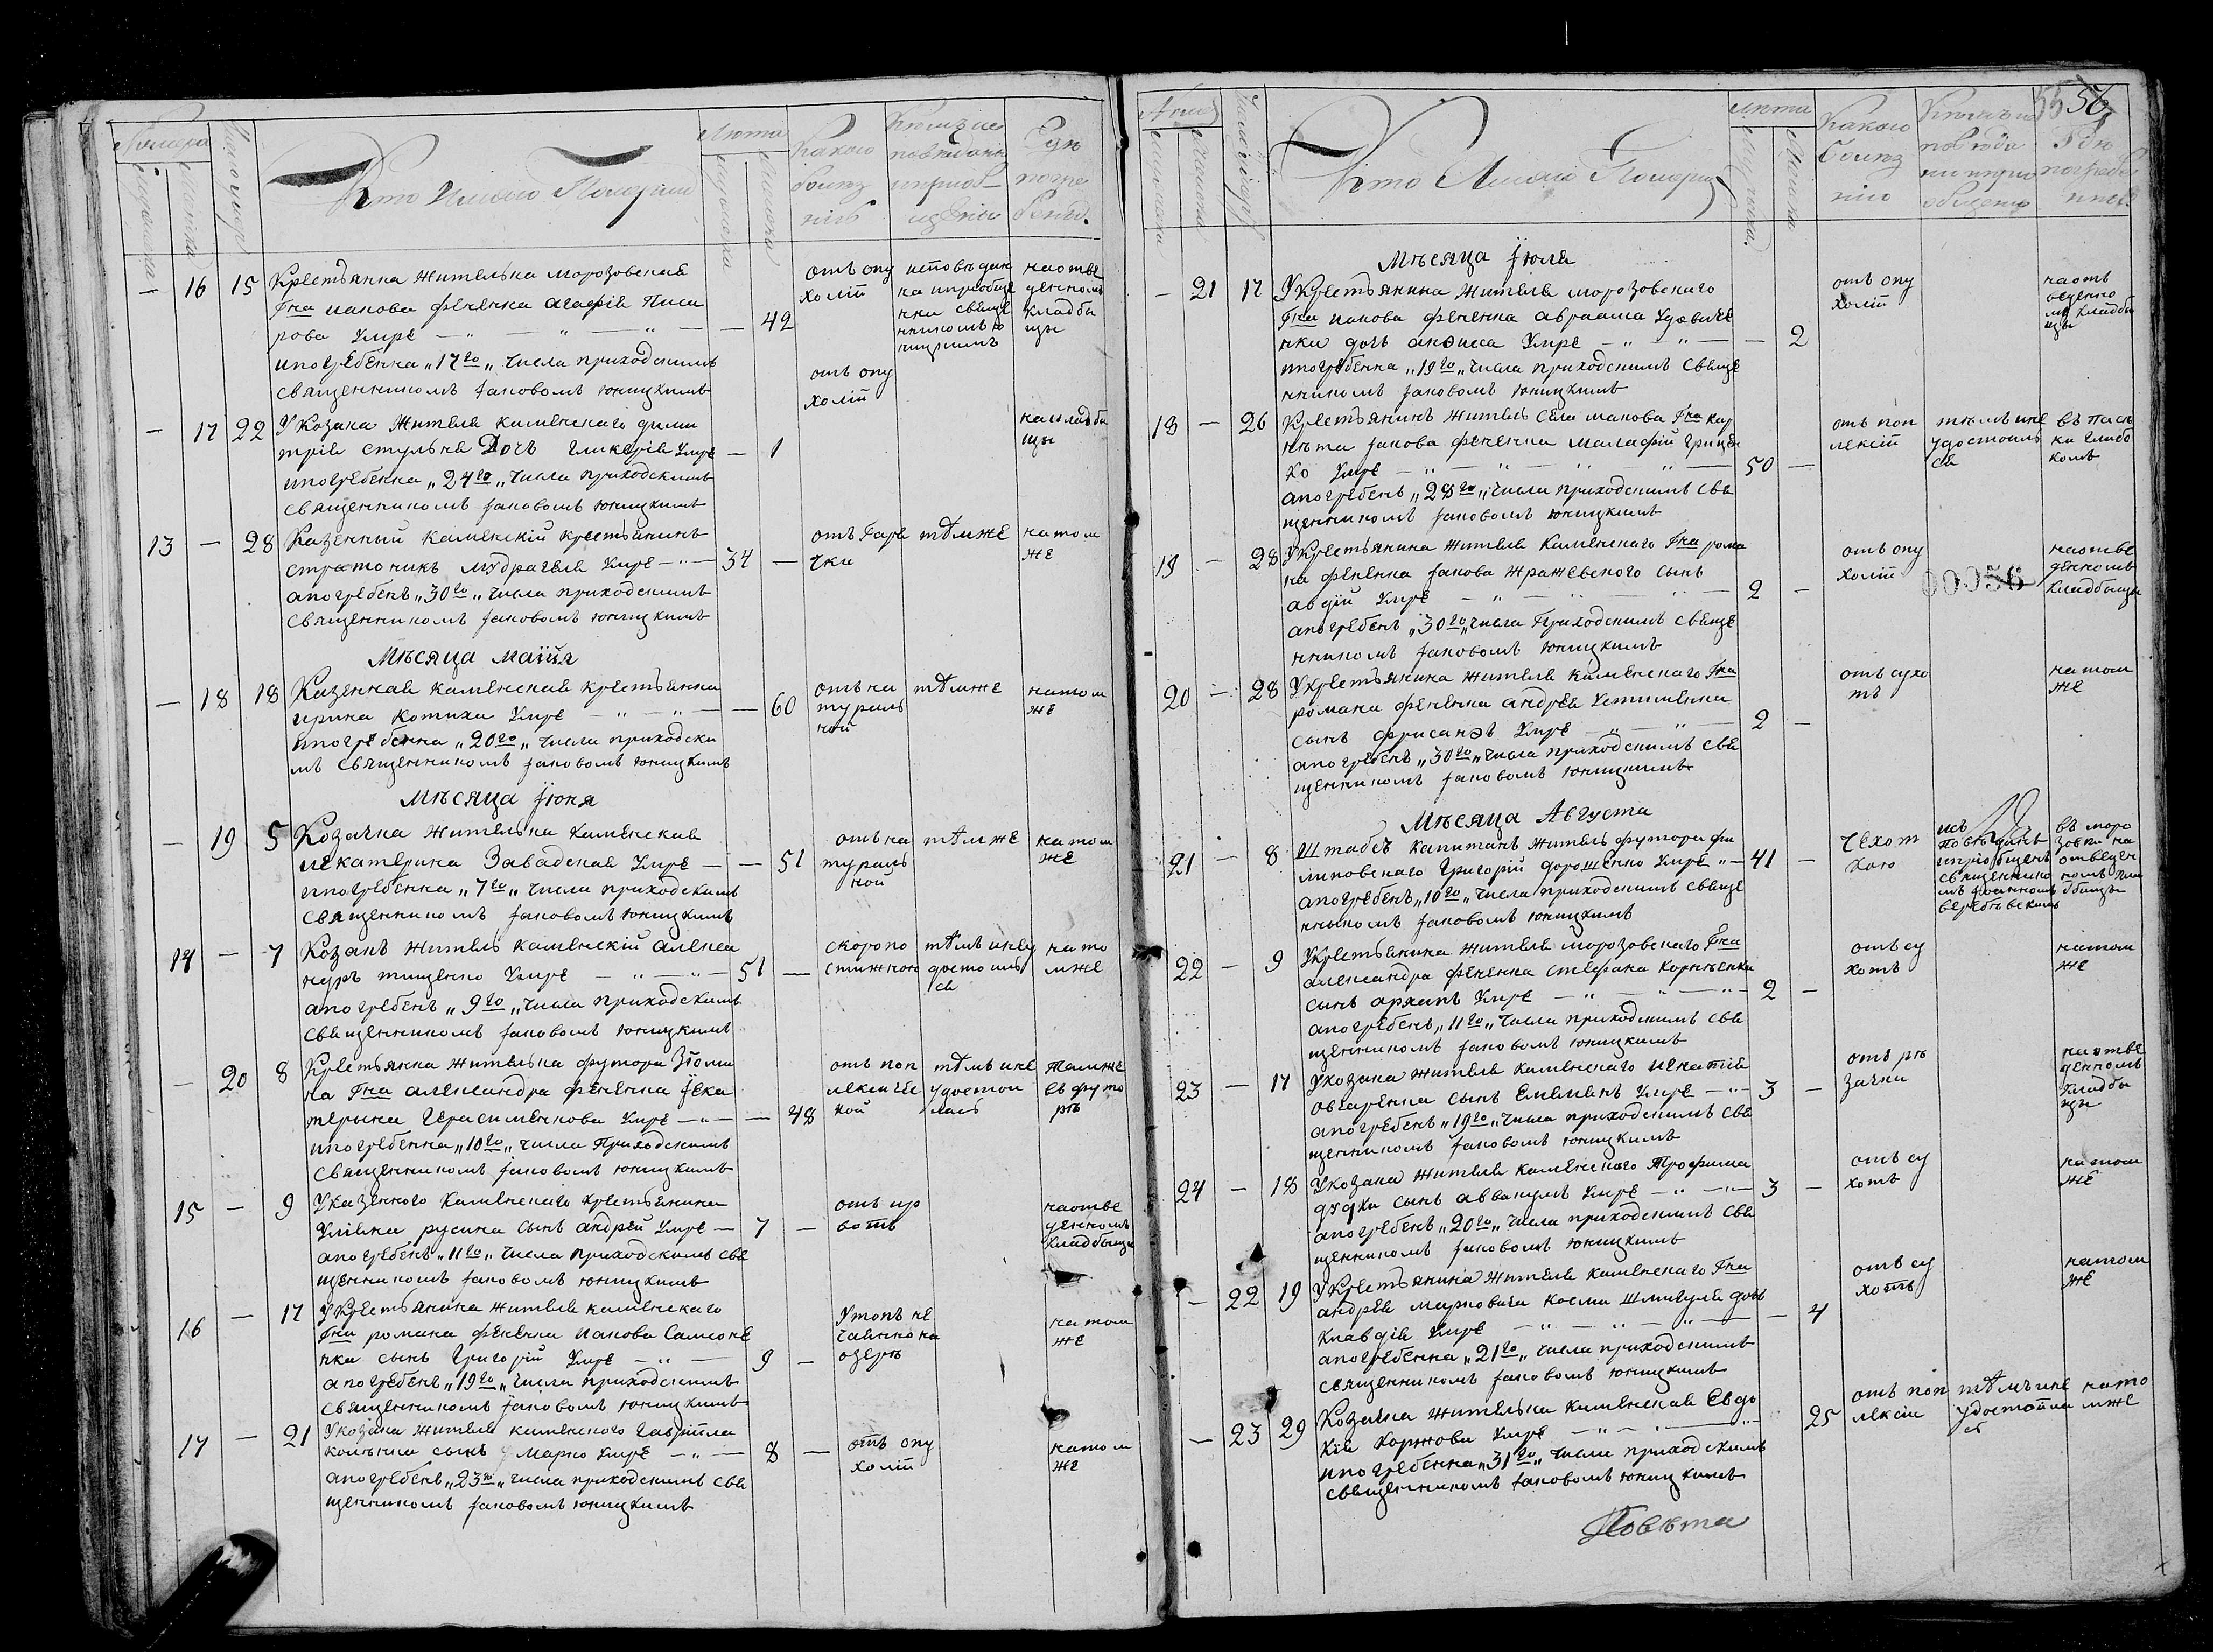 56
Номера
Лѣта
Кто Именно Померли
Какою
болез
нію
Гдѣ
погре
бенъ.
— 16 15 Крестьянка жителька морозовская
Гна иакова феченка агафія Писа
рова умре — 42
ипогребенна „17го„ числа приходскимъ
священникомъ іаковомъ юницкимъ
отъ опу
холій
исповѣдан
на приобще
нна свяще
нникомъ ю
ницкимъ
на отве
денномъ
кладби
щы
— 17 22 У Козака Жителя каменского дими
трія стульня Дочь гликерія умре — 1
ипогребенна „24го„ числа приходскимъ
священникомъ іаковомъ юницкимъ
отъ опу
холій
на кладби
щы
13 — 28 Казенный каменскій крестьянинъ
стратоникъ мудрагеля умре — 34 —
апогребенъ „30го„ числа приходскимъ
священникомъ іаковомъ юницкимъ
отъ Горя
чки
тѣмже
натом
же
Мѣсяца маийя
— 18 18 Казенная каменская крестьянка
ирина котиха умре — 60
ипогребенна „20го„ числа приходски
мъ священникомъ іаковомъ юницкимъ
отъ на
тураль
ной
тѣмже
натом
же
Мѣсяца іюня
— 19 5 Козачка жителька каменская
иекатерина Завадская умре — 51
ипогребенна „7го„ числа приходскимъ
священникомъ іаковомъ юницкимъ
отъ на
тураль
ной
тѣмже
натом
же
14 — 7 Козакъ житель каменскій алекса
ндръ тищенко умре — 51 —
апогребенъ „9го„ числа приходскимъ
священникомъ іаковомъ юницкимъ
скоропо
стижною
тѣмъ инеу
достоилъ
ся
на то
мже
— 20 8 Крестьянка жителька футора
на Гна александра феченка іека
терына Герасименкова умре — 48
ипогребенна „10го„ числа Приходскимъ
священникомъ іаковомъ юницкимъ
отъ поп
лексиче
кой
тѣмъ ине
удостои
лась
тамже
въ футо
рѣ
15 — 9 У казенного каменского крестьянина
Уліяна русина сынъ андрей умре — 7 —
апогребенъ „11го„ числа приходскимъ свя
щенникомъ іаковомъ юницкимъ
наотве
денномъ
кладбыщи
16 — 17 У Крестьянина жителя каменскаго
Гна романа феченка иакова Самсоне
нка сынъ Григорій умре — 9 —
апогребенъ „19го„ числа приходскимъ
священникомъ іаковомъ юницкимъ
Утопъ не
чаянно на
озерѣ
натом
же
17 — 21 У козака жителя каменского гавріила
сынъ Марко умре — 8 —
апогребенъ „23го„ числа приходскимъ свя
щенникомъ іаковомъ юницкимъ
отъ опу
холій
натом
же
Лѣта
Кто Именно Померли
Какою
болез
нію
Мѣсяца іюля
— 21 17 У Крестьянина жителя морозовскаго
Гна иакова феченка авраама Удовиче
нка дочь анфиса умре — 2
ипогребенна „19го„ числа приходскимъ свяще
нникомъ іаковомъ юницкимъ
отъ опу
холій
на отъ
веденно
мъ кладби
щы
18 — 26 Крестьянинъ житель села макова Гна кор
нѣта іакова феченка малафій грицен
ко умре — 50 —
апогребенъ „28го„ числа приходскимъ свя
щенникомъ іаковомъ юницкимъ
отъ поп
лексій
тѣмъ ине
удостоилъ
ся
въ пась
ки
19 — 28 У Крестьянина жителя Каменского Гна рома
на феченка іакова Жражевского сынъ
авдій умре — 2 —
апогребенъ „30го„ числа Приходскимъ свяще
нникомъ іаковомъ юницкимъ
отъ опу
холій
00056
наотве
денномъ
кладбыщи
20 — 28 У Крестьянина жителя каменского Гна
романа феченка андрея Устименка
сынъ фрисанѳъ умре — 2 —
апогребенъ „30го„ числа приходскимъ свя
щенникомъ іаковомъ юницкимъ
отъ сухо
тъ
натом
же
Мѣсяца Августа
21 — 8 Штабсъ капитанъ житель футора фи
липовского Григорій дорошенко умре — 41 —
апогребенъ „10го„ числа приходскимъ свяще
нныкомъ іаковомъ юницкимъ
Чехот
кою
ис
повѣданъ
ипріобщенъ
священнико
мъ
въ моро
зовки на
отведен
номъ кла
дбищы
22 — 9 У Крестьянина жителя морозовскаго Гна
александра феченка стефана Корнѣенка
сынъ архипъ умре — 2 —
апогребенъ „11го„ числа приходскимъ свя
щенникомъ іаковомъ юницкимъ
отъ су
хотъ
натом
же
23 — 17 У козака жителя каменского игнатія
овчаренка сынъ Емелянъ умре — 3 —
апогребенъ „19го„ числа приходскимъ свя
щенникомъ іаковомъ юницкимъ
отъ рѣ
зачки
наотве
денномъ
кладби
щы
24 — 18 У козака жителя каменского Трофима
дудки сынъ аввакумъ умре — 3 —
апогребенъ „20го„ числа приходскимъ свя
щенникомъ іаковомъ юницкимъ
отъ су
хотъ
натом
же
— 22 19 У Крестьянина жителя каменского Гна
андрея марковича косми шмигуля дочь
клавдія умре — 4
апогребенна „21го„ числа приходскимъ
священникомъ іаковомъ юницкимъ
отъ су
хотъ
натом
же
— 23 29 Козачка жителька каменская Евдо
кія Коржова умре — 25
ипогребенна „31го„ числа приходскимъ
священникомъ іаковомъ юницкимъ
отъ поп
лексіи
тѣмъ ине
удостоила
сь
на то
мже